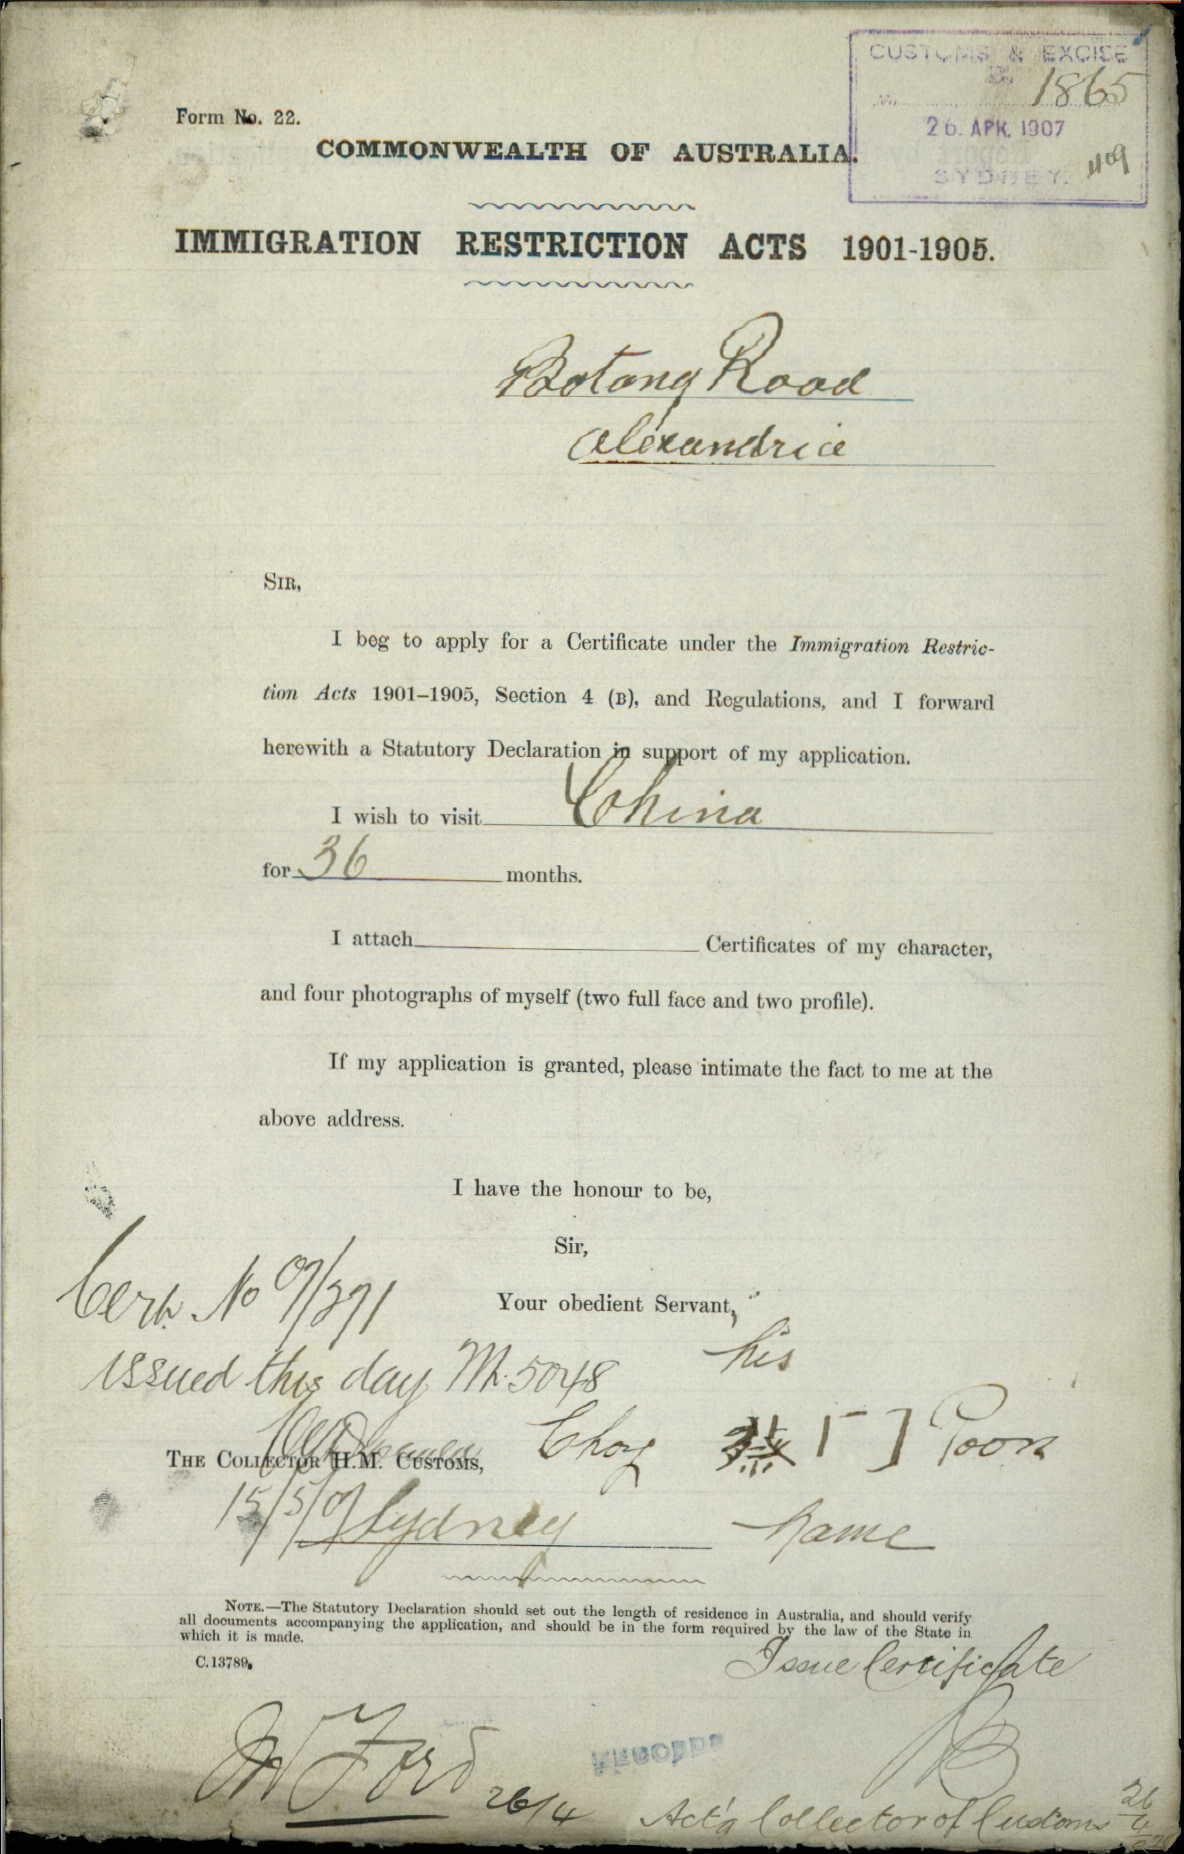 CUSTOMS & EXCISE
No 1865
26. APR. 1907
SYDNEY.
Form No. 22.
COMMONWEALTH OF AUSTRALIA.
IMMIGRATION RESTRICTION ACTS 1901-1905.
Botany Road
Alexandria
SIR,
I beg to apply for a Certificate under the Immigration Restric-
tion Acts 1901–1905, Section 4 (B), and Regulations, and I forward
herewith a Statutory Declaration in support of my application.
I wish to visit China
for 36 months.
I attach Certificates of my character,
and four photographs of myself (two full face and two profile).
If my application is granted, please intimate the fact to me at the
above address.
I have the honour to be,
Sir,
Your obedient Servant,
Cert. No 07/271
issued this day M. 5048
his
Choy Poon
THE COLLECTOR H.M. CUSTOMS,
15/5/07 Sydney
name
NOTE.—The Statutory Declaration should set out the length of residence in Australia, and should verify
all documents accompanying the application, and should be in the form required by the law of the State in
which it is made.
C.13789.
Issue Certificate
Ford 26/4
Act'g Collector of Customs 26/4